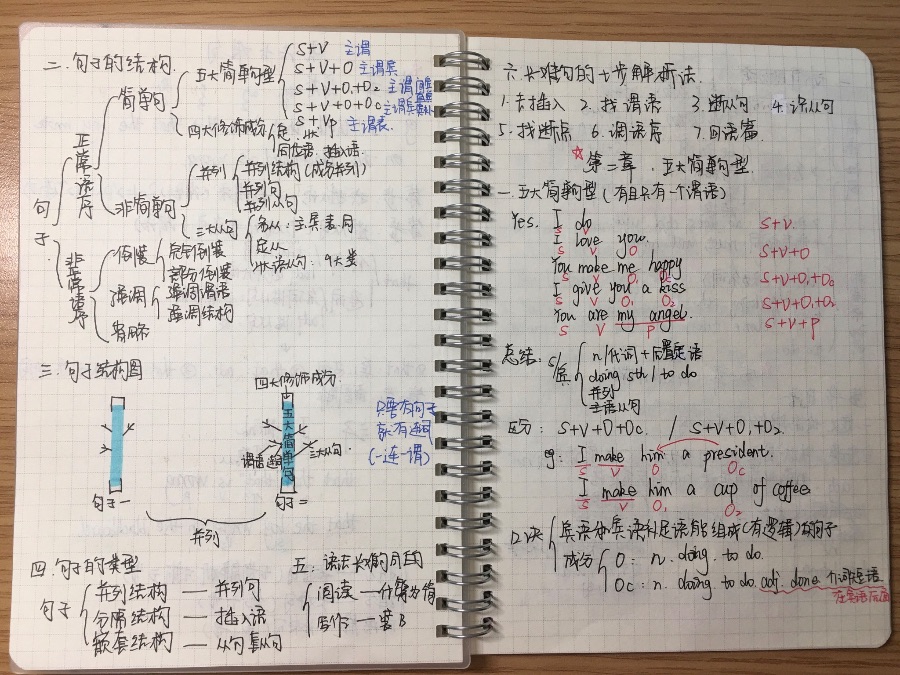 二.句子的结构.
句子
正常语序
简单句
五大简单句型
S+V 主谓
S+V+O 主谓宾
S+V+O₁+O₂ 主谓
S+V+O+Oc 主谓宾
S+Vp 主谓表.
四大修饰成分
定 状
同位语. 插入语.
非简单句
并列
并列结构(成分并列)
并列句
并列从句
三大从句
名从: 主 宾 表 同
定从
状语从句: 9大类
非正常语序
倒装
完全倒装
部分倒装
强调
强调谓语
强调结构
省略
三.句子结构图
四大修饰成分.
五大简单句
谓语
三大从句.
句子一
句子二
并列
只要有句子
就有连词
(一连一谓)
四.句子的类型
句子
并列结构 — 并列句
分隔结构 — 插入语
嵌套结构 — 从句套从句
五. 语法长难的目的
阅读 — 化繁为简
写作 — 装B
六.长难句的七步解析法.
1.去插入 2.找谓语 3.断从句 4.读从句
5.找断点 6.调语序 7.回语篇
☆ 第二章.五大简单句型.
一.五大简单句型(有且只有一个谓语)
Yes. I do S+V.
S V
I love you. S+V+O
S V O
You make me happy S+V+O₁+Oc
S V O Oc
I give you a kiss S+V+O₁+O₂
S V O₁ O₂
You are my angel. S+V+P
S V P
总结: S/宾
n/代词+后置定语
doing sth / to do
并列
主语从句
区分: S+V+O+Oc. / S+V+O₁+O₂.
eg: I make him a president.
S V O Oc
I make him a cup of coffee
S V O₁ O₂
口诀
宾语和宾语补足语能组成(有逻辑)的句子
成分
O : n. doing. to do.
Oc : n. doing. to do. adj. done. 介词短语
在宾语后面